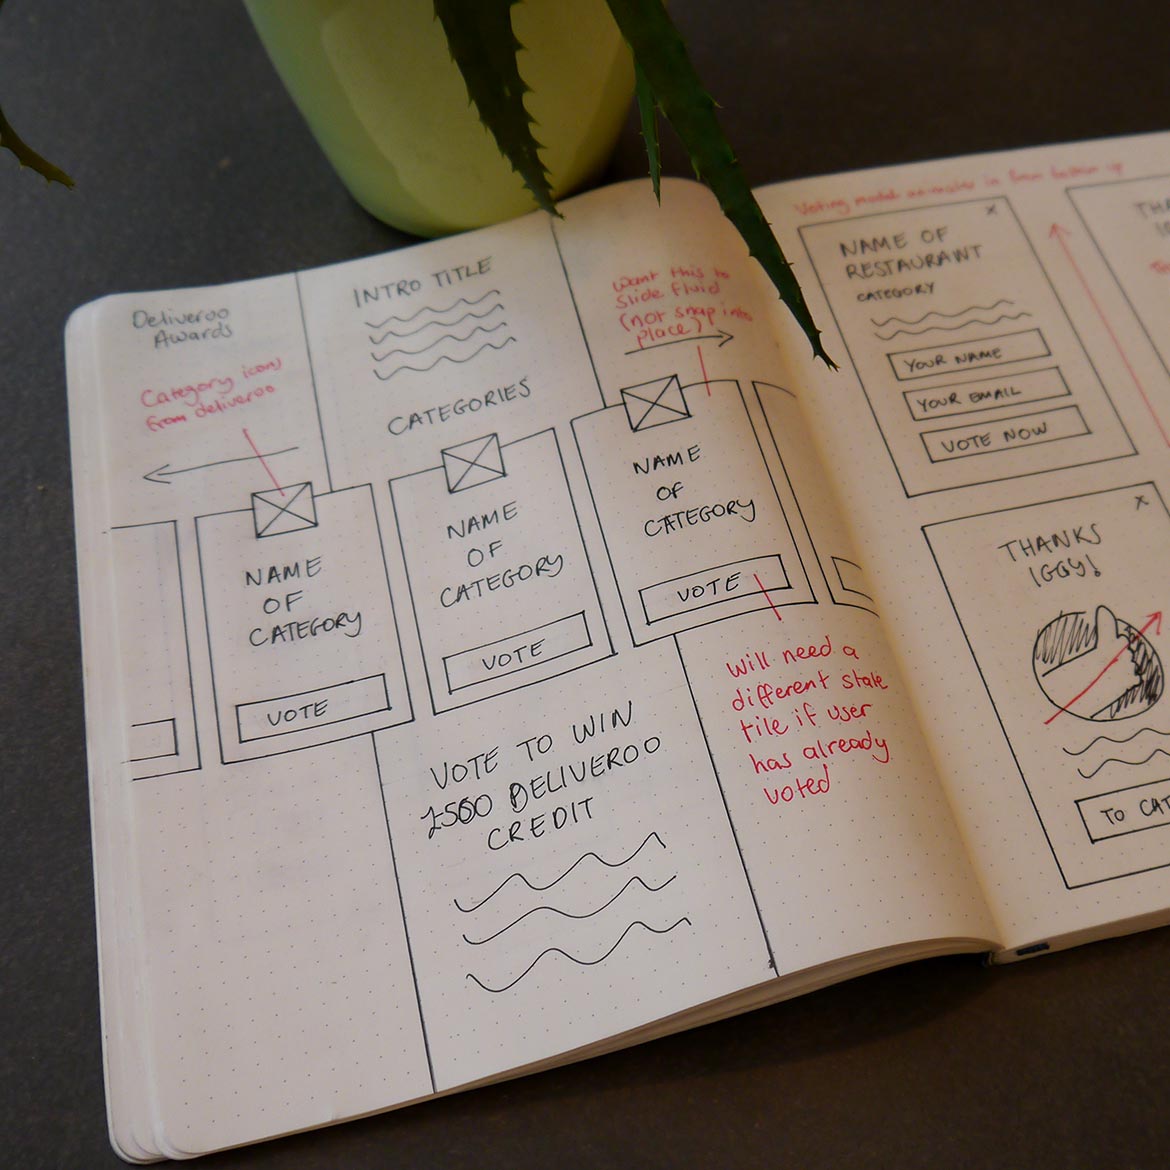 Deliveroo
Awards
Category icons
from deliveroo
INTRO TITLE
CATEGORIES
Want this to
slide fluid
(not snap into
place)
NAME
OF
CATEGORY
VOTE
NAME
OF
CATEGORY
VOTE
NAME
OF
CATEGORY
VOTE
VOTE TO WIN
£500 DELIVEROO
CREDIT
Will need a
different state
tile if user
has already
voted
Voting modal animates in from bottom up
X
NAME OF
RESTAURANT
CATEGORY
YOUR NAME
YOUR EMAIL
VOTE NOW
X
THANKS
IGGY!
TO CAT
THA